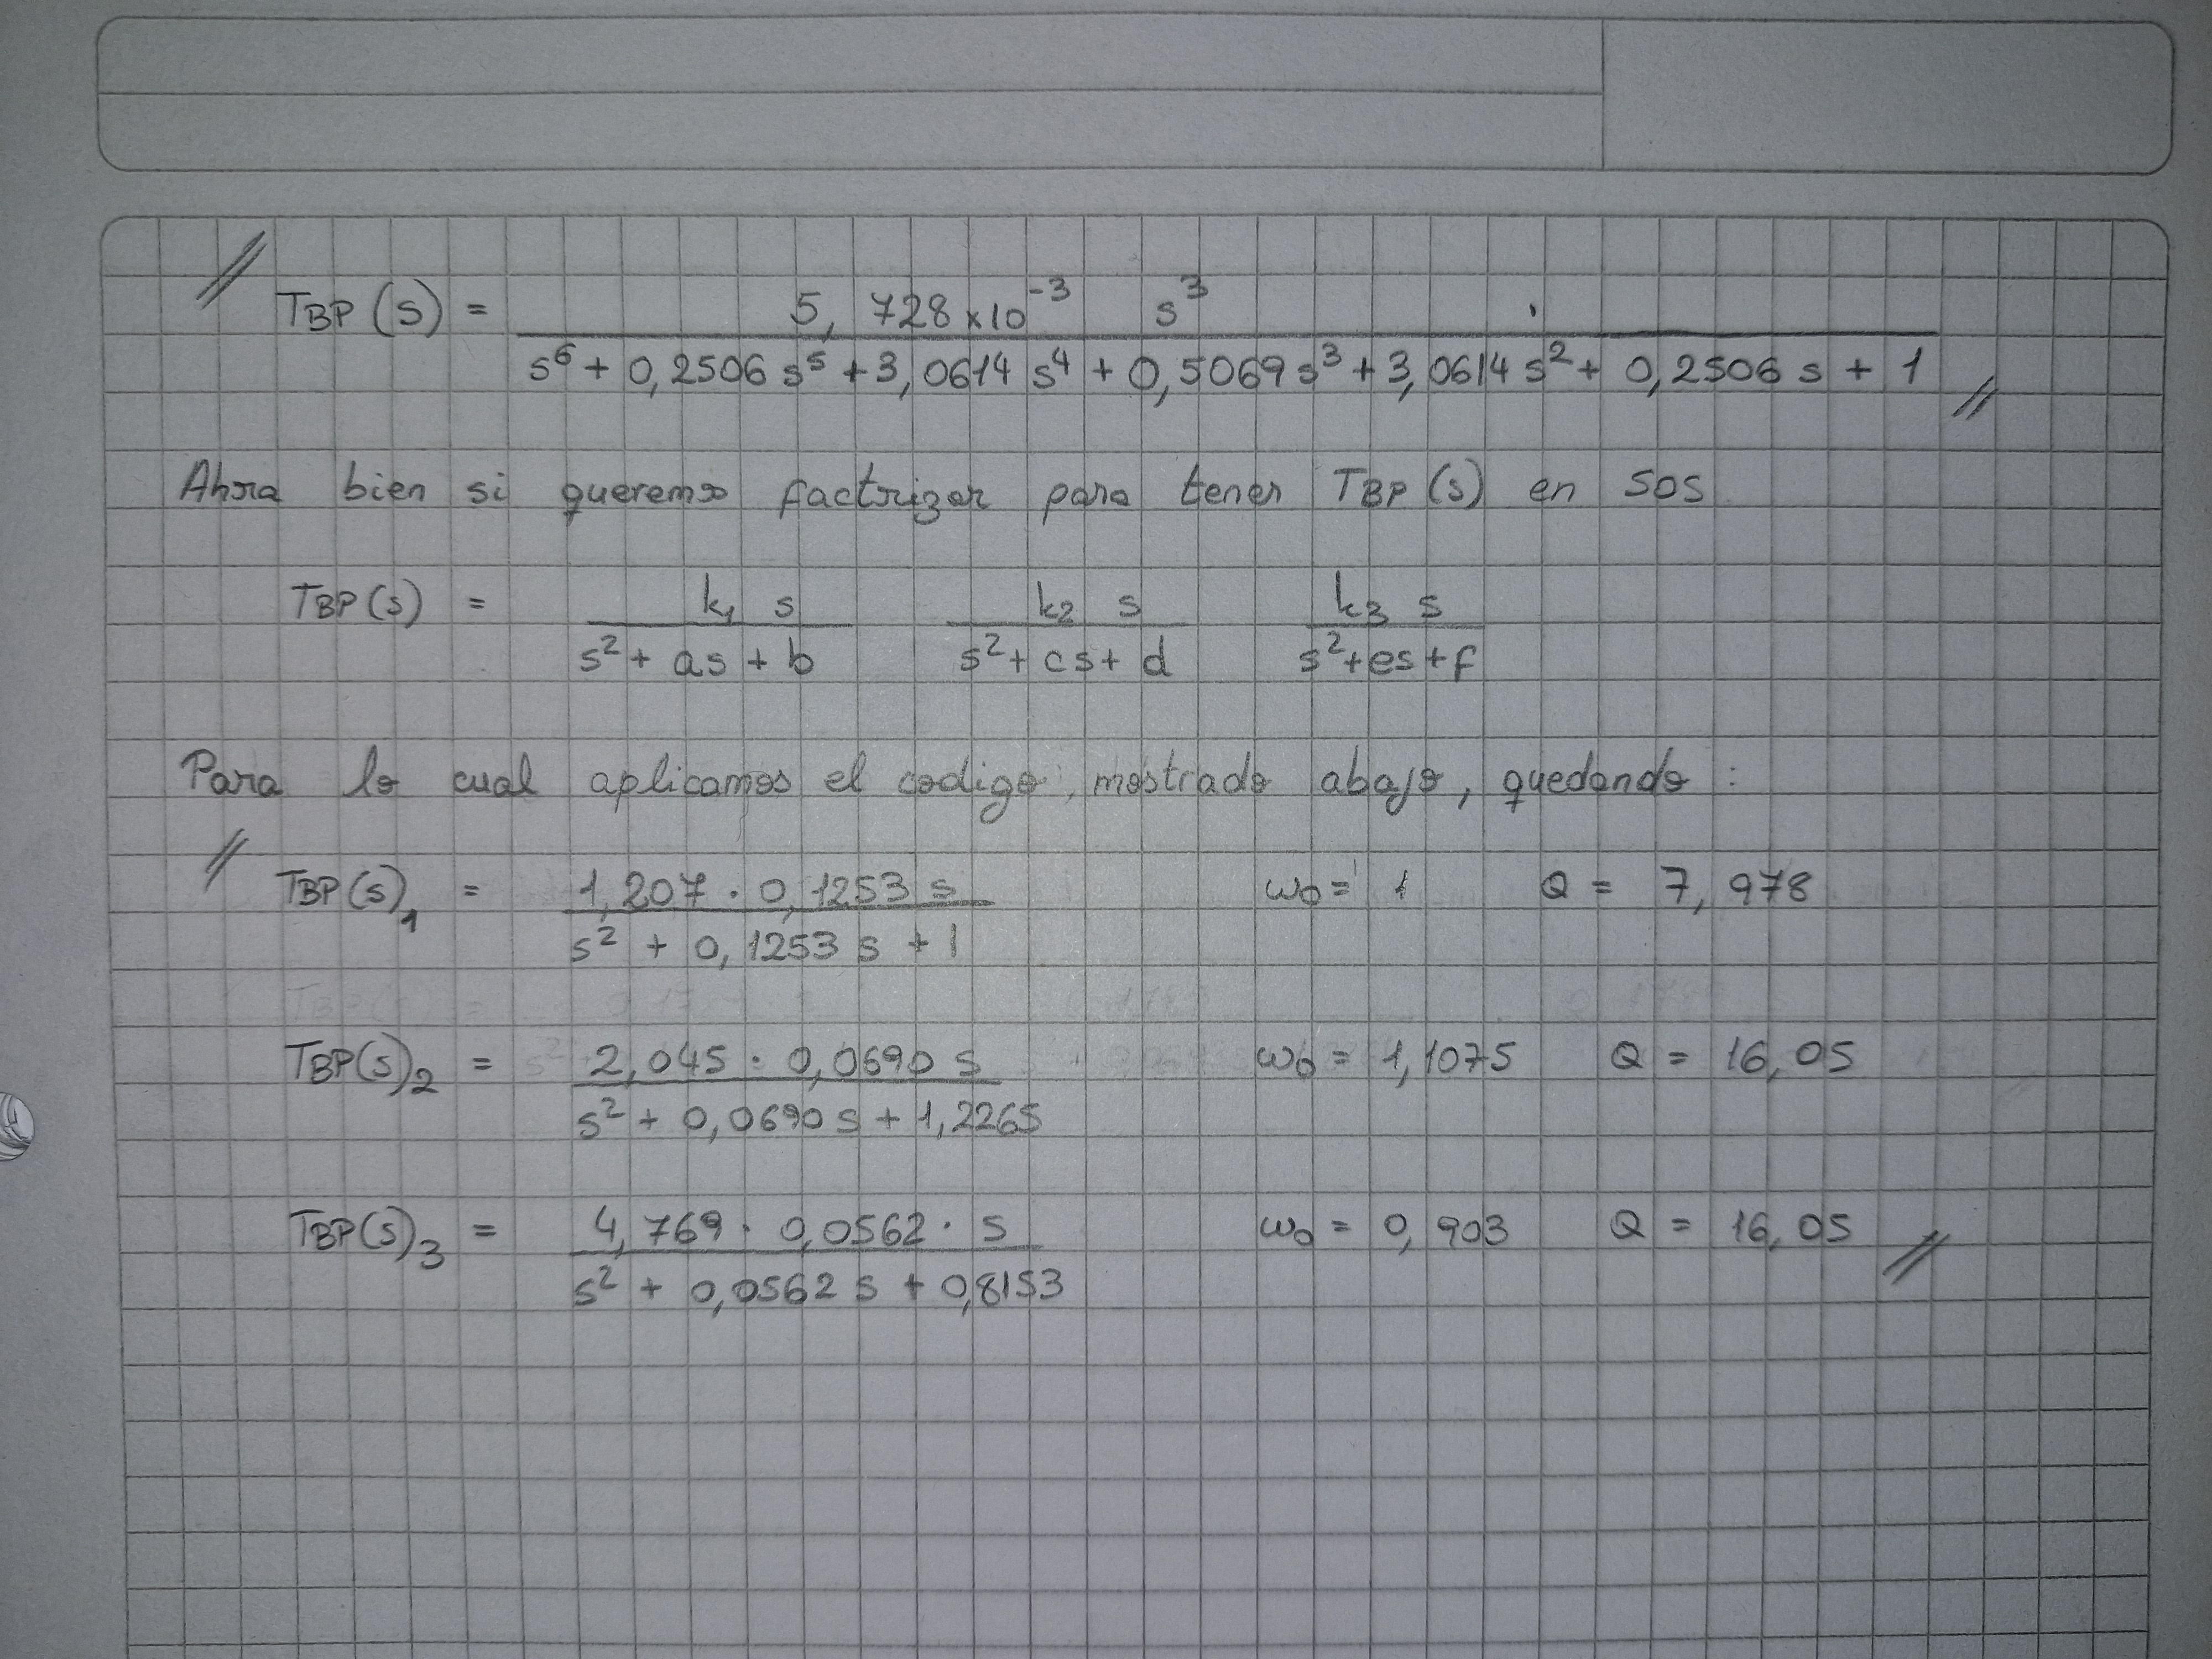 TBP(s) = 5,728×10⁻³ s³ / s⁶ + 0,2506 s⁵ + 3,0614 s⁴ + 0,5069 s³ + 3,0614 s² + 0,2506 s + 1
Ahora bien si queremos factorizar para tener TBP(s) en SOS
TBP(s) = k₁ s / s² + as + b   k₂ s / s² + cs + d   k₃ s / s² + es + f
Para lo cual aplicamos el codigo, mostrado abajo, quedando :
TBP(s)₁ = 1,207 · 0,1253 s / s² + 0,1253 s + 1   ω₀ = 1   Q = 7,978
TBP(s)₂ = 2,045 · 0,0690 s / s² + 0,0690 s + 1,2265   ω₀ = 1,1075   Q = 16,05
TBP(s)₃ = 4,769 · 0,0562 · s / s² + 0,0562 s + 0,8153   ω₀ = 0,903   Q = 16,05